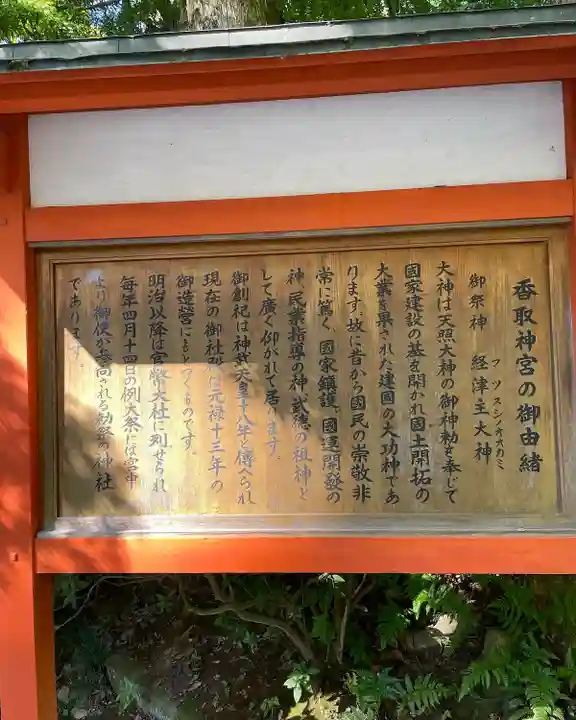 香取神宮の御由緒
御祭神 経津主大神
フツヌシノオオカミ
大神は天照大神の御神勅を奉じて
国家建設の基を開かれ国土開拓の
大業を果された建国の大功神であ
ります。故に昔から国民の崇敬非
常に篤く、国家鎮護、國運開發の
神、民業指導の神、武徳の祖神と
して廣く仰がれて居ります。
御創祀は神武天皇十八年と傳へられ
現在の御社殿は元禄十三年の
御造營にもとづくものです。
明治以降は官幣大社に列せられ
毎年四月十四日の例大祭には宮中
より御使が参向される勅祭の神社
であります。